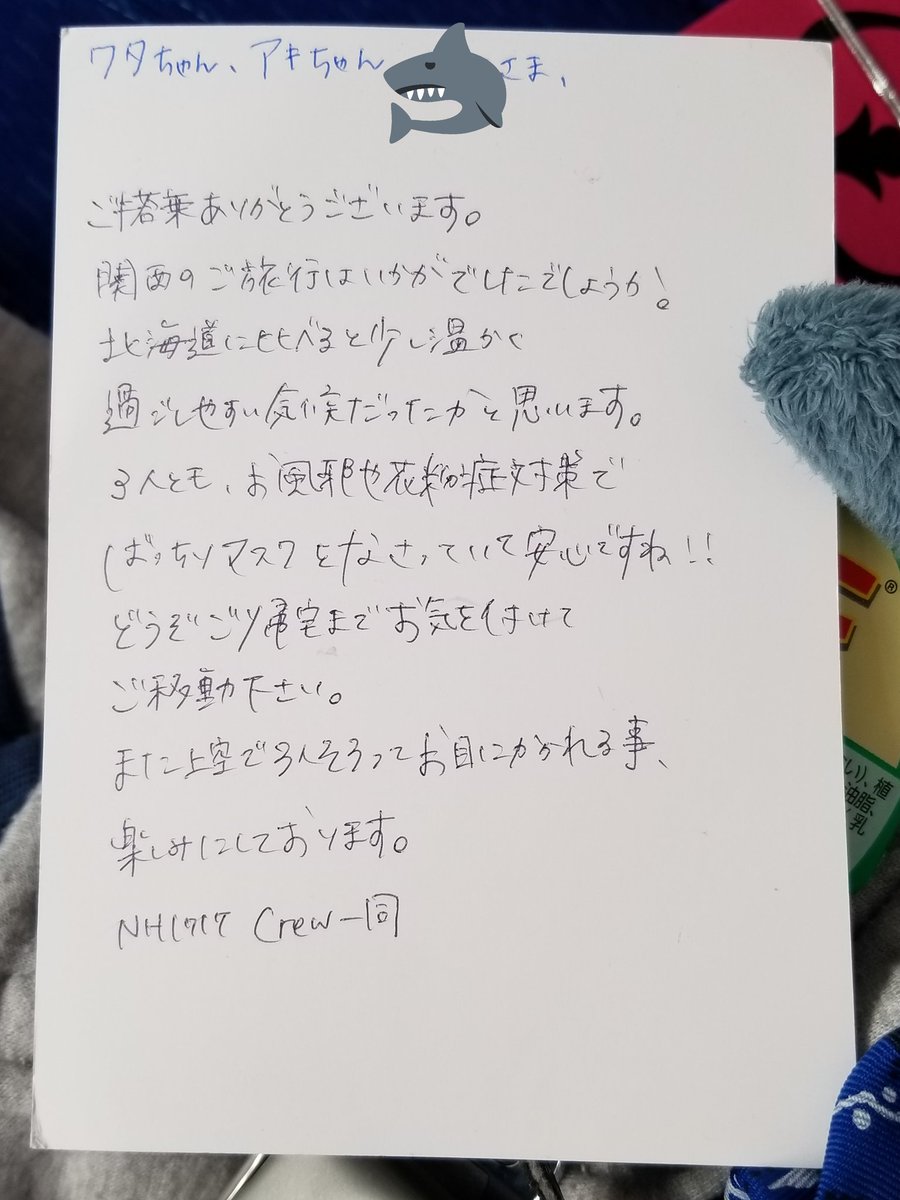 ワタちゃん、アキちゃん さま、
ご搭乗ありがとうございます。
関西のご旅行はいかがでしたでしょうか!
北海道に比べると少し温かく
過ごしやすい気候だったかと思います。
3人とも、お風邪や花粉症対策で
ばっちりマスクをなさっていて安心ですね!!
どうぞご帰宅までお気を付けて
ご移動下さい。
また上空で3人そろってお目にかかれる事、
楽しみにしております。
NH1717 Crew一同
®
い)、植
油脂、
乳